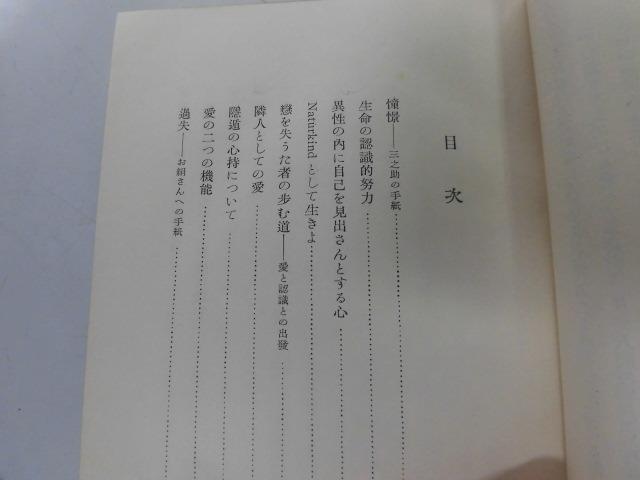 目次
憧憬――三之助の手紙
生命の認識的努力
異性の内に自己を見出さんとする心
Naturkind として生きよ
戀を失うた者の歩む道――愛と認識との出發
隣人としての愛
隱遁の心持について
愛の二つの機能
過失――お絹さんへの手紙